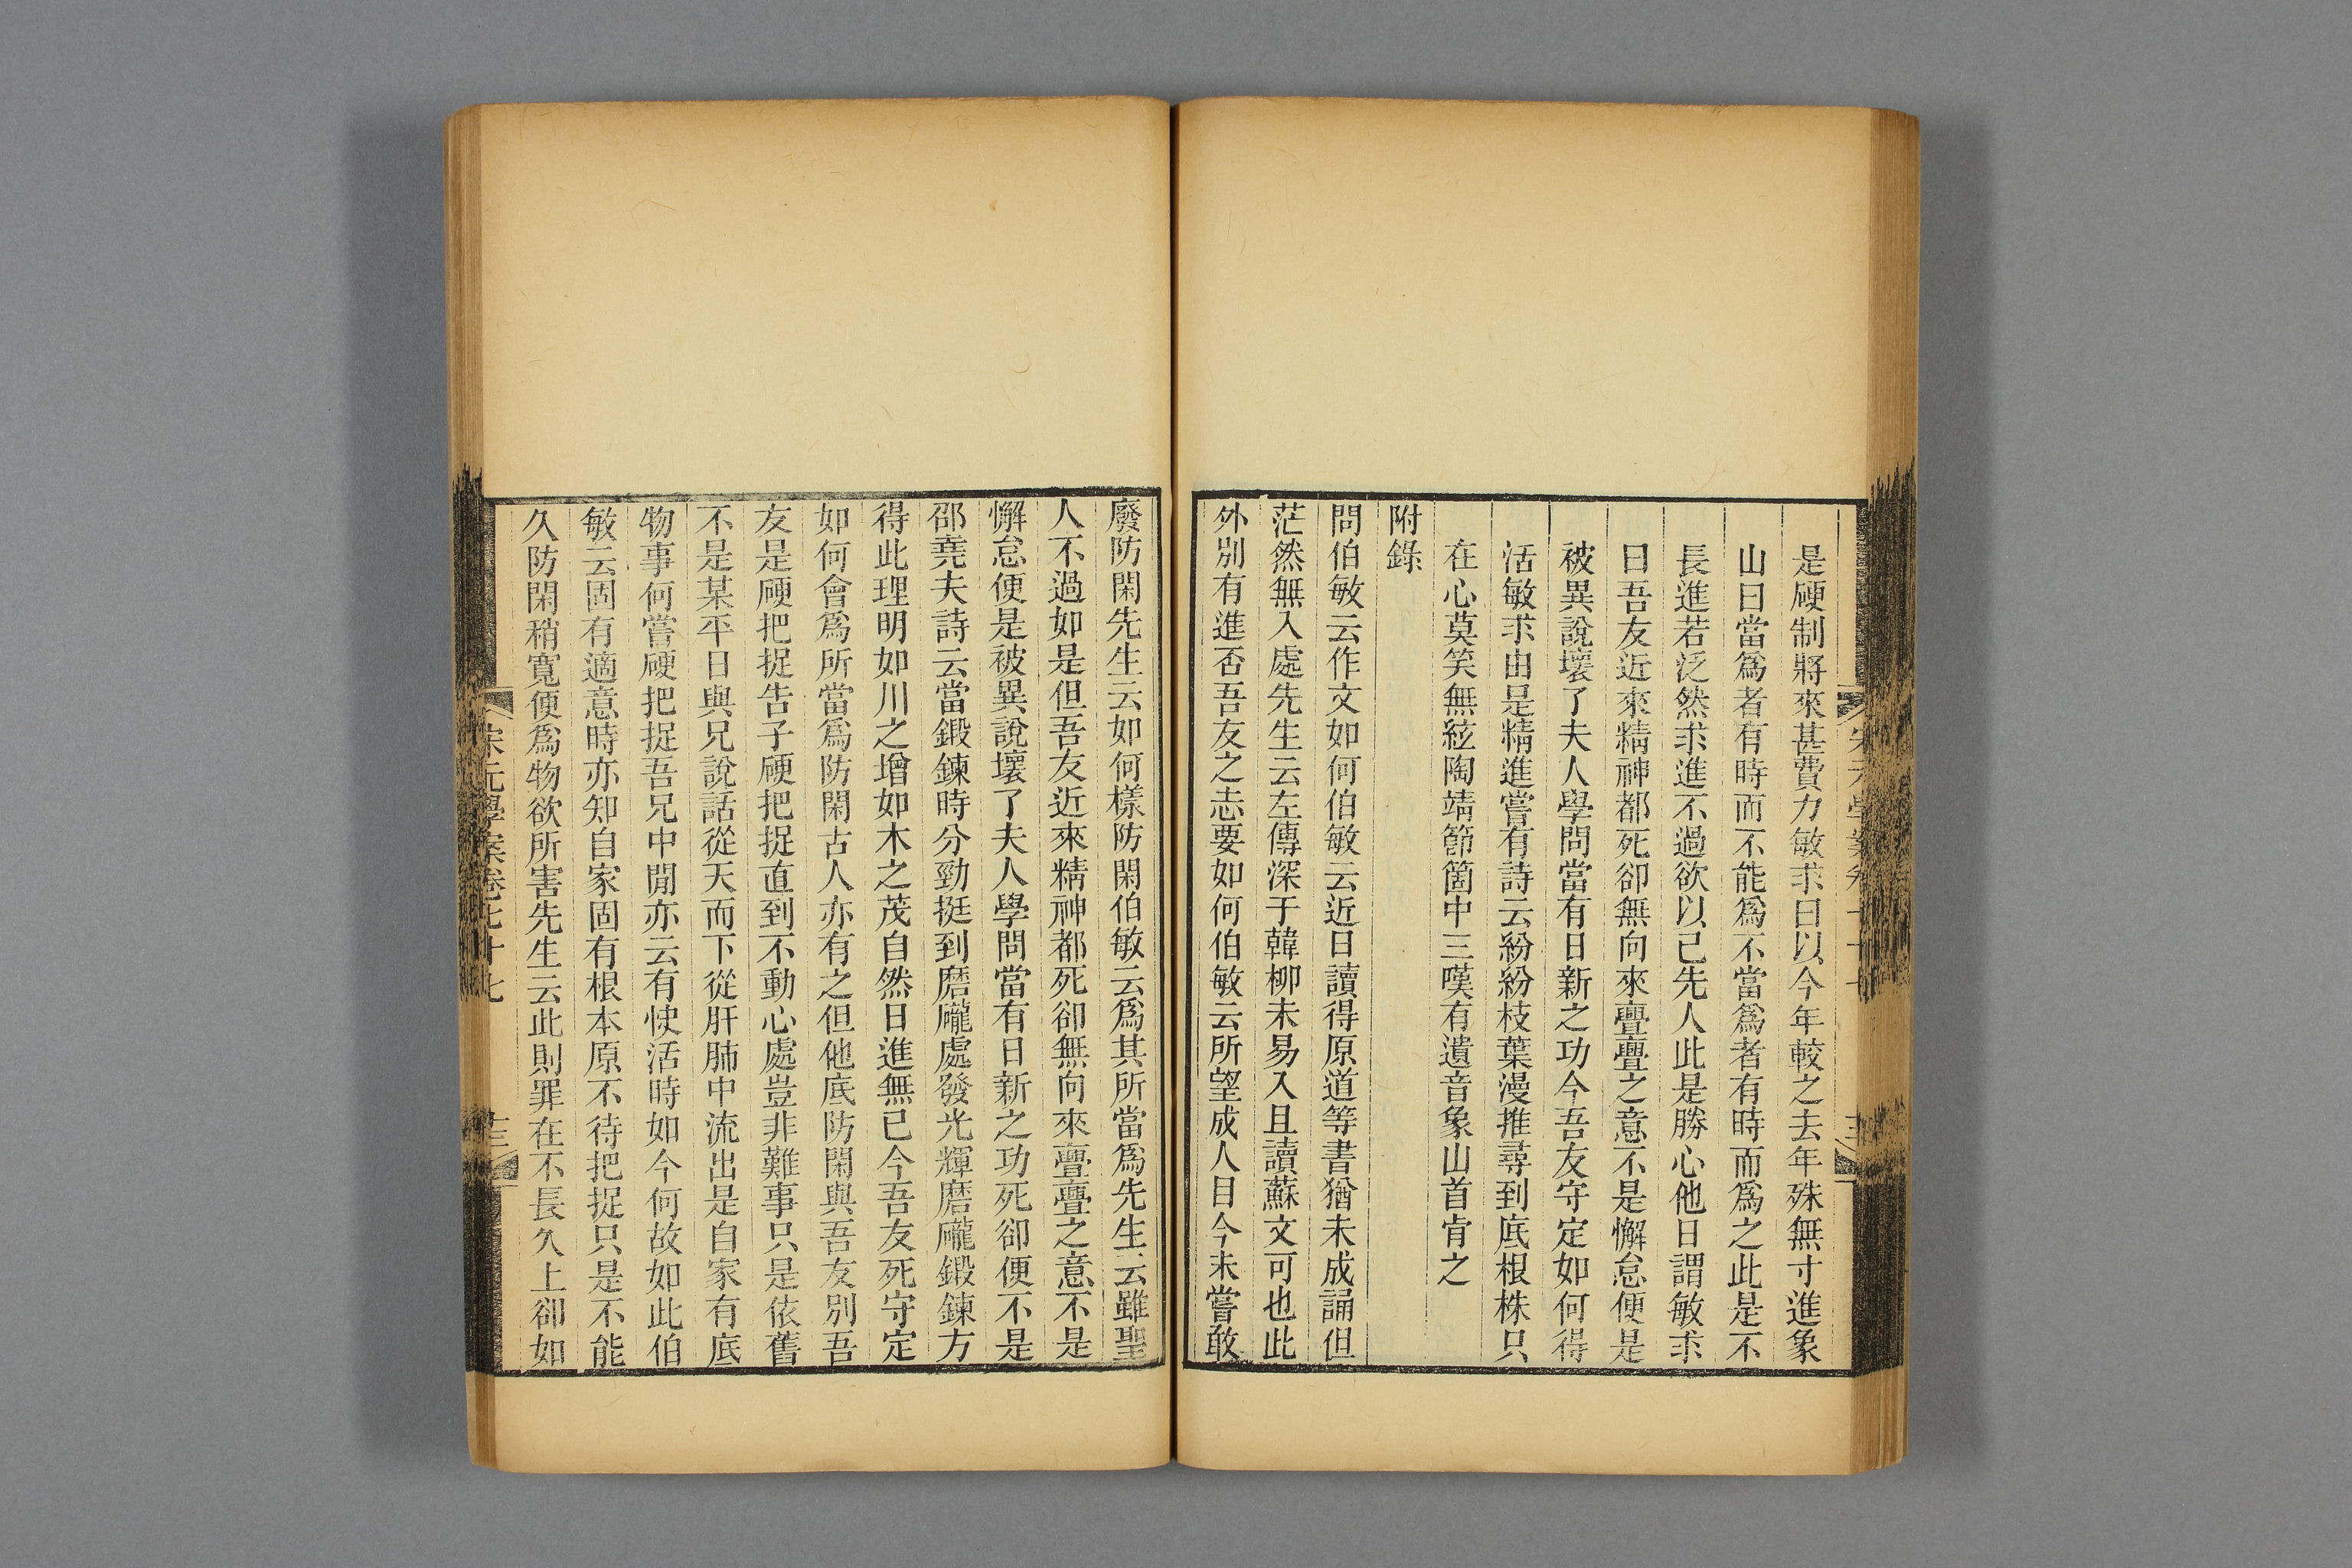 是硬制將來甚費力敏求曰以今年較之去年殊無寸進象
山曰當爲者有時而不能爲不當爲者有時而爲之此是不
長進若泛然求進不過欲以己先人此是勝心他日謂敏求
曰吾友近來精神都死卻無向來亹亹之意不是懈怠便是
被異說壞了夫人學問當有日新之功今吾友守定如何得
活敏求由是精進嘗有詩云紛紛枝葉漫推尋到底根株只
在心莫笑無絃陶靖節箇中三嘆有遺音象山首肯之
附錄
問伯敏云作文如何伯敏云近日讀得原道等書猶未成誦但
茫然無入處先生云左傳深于韓柳未易入且讀蘇文可也此
外別有進否吾友之志要如何伯敏云所望成人目今未嘗敢
廢防閑先生云如何樣防閑伯敏云爲其所當爲先生云雖聖
人不過如是但吾友近來精神都死卻無向來亹亹之意不是
懈怠便是被異說壞了夫人學問當有日新之功死卻便不是
邵堯夫詩云當鍛鍊時分勁挺到磨礲處發光輝磨礲鍛鍊方
得此理明如川之增如木之茂自然日進無已今吾友死守定
如何會爲所當爲防閑古人亦有之但他底防閑與吾友別吾
友是硬把捉告子硬把捉直到不動心處豈非難事只是依舊
不是某平日與兄說話從天而下從肝肺中流出是自家有底
物事何嘗硬把捉吾兄中閒亦云有快活時如今何故如此伯
敏云固有適意時亦知自家固有根本原不待把捉只是不能
久防閑稍寬便爲物欲所害先生云此則罪在不長久上卻如
宋元學案卷七十七
十三